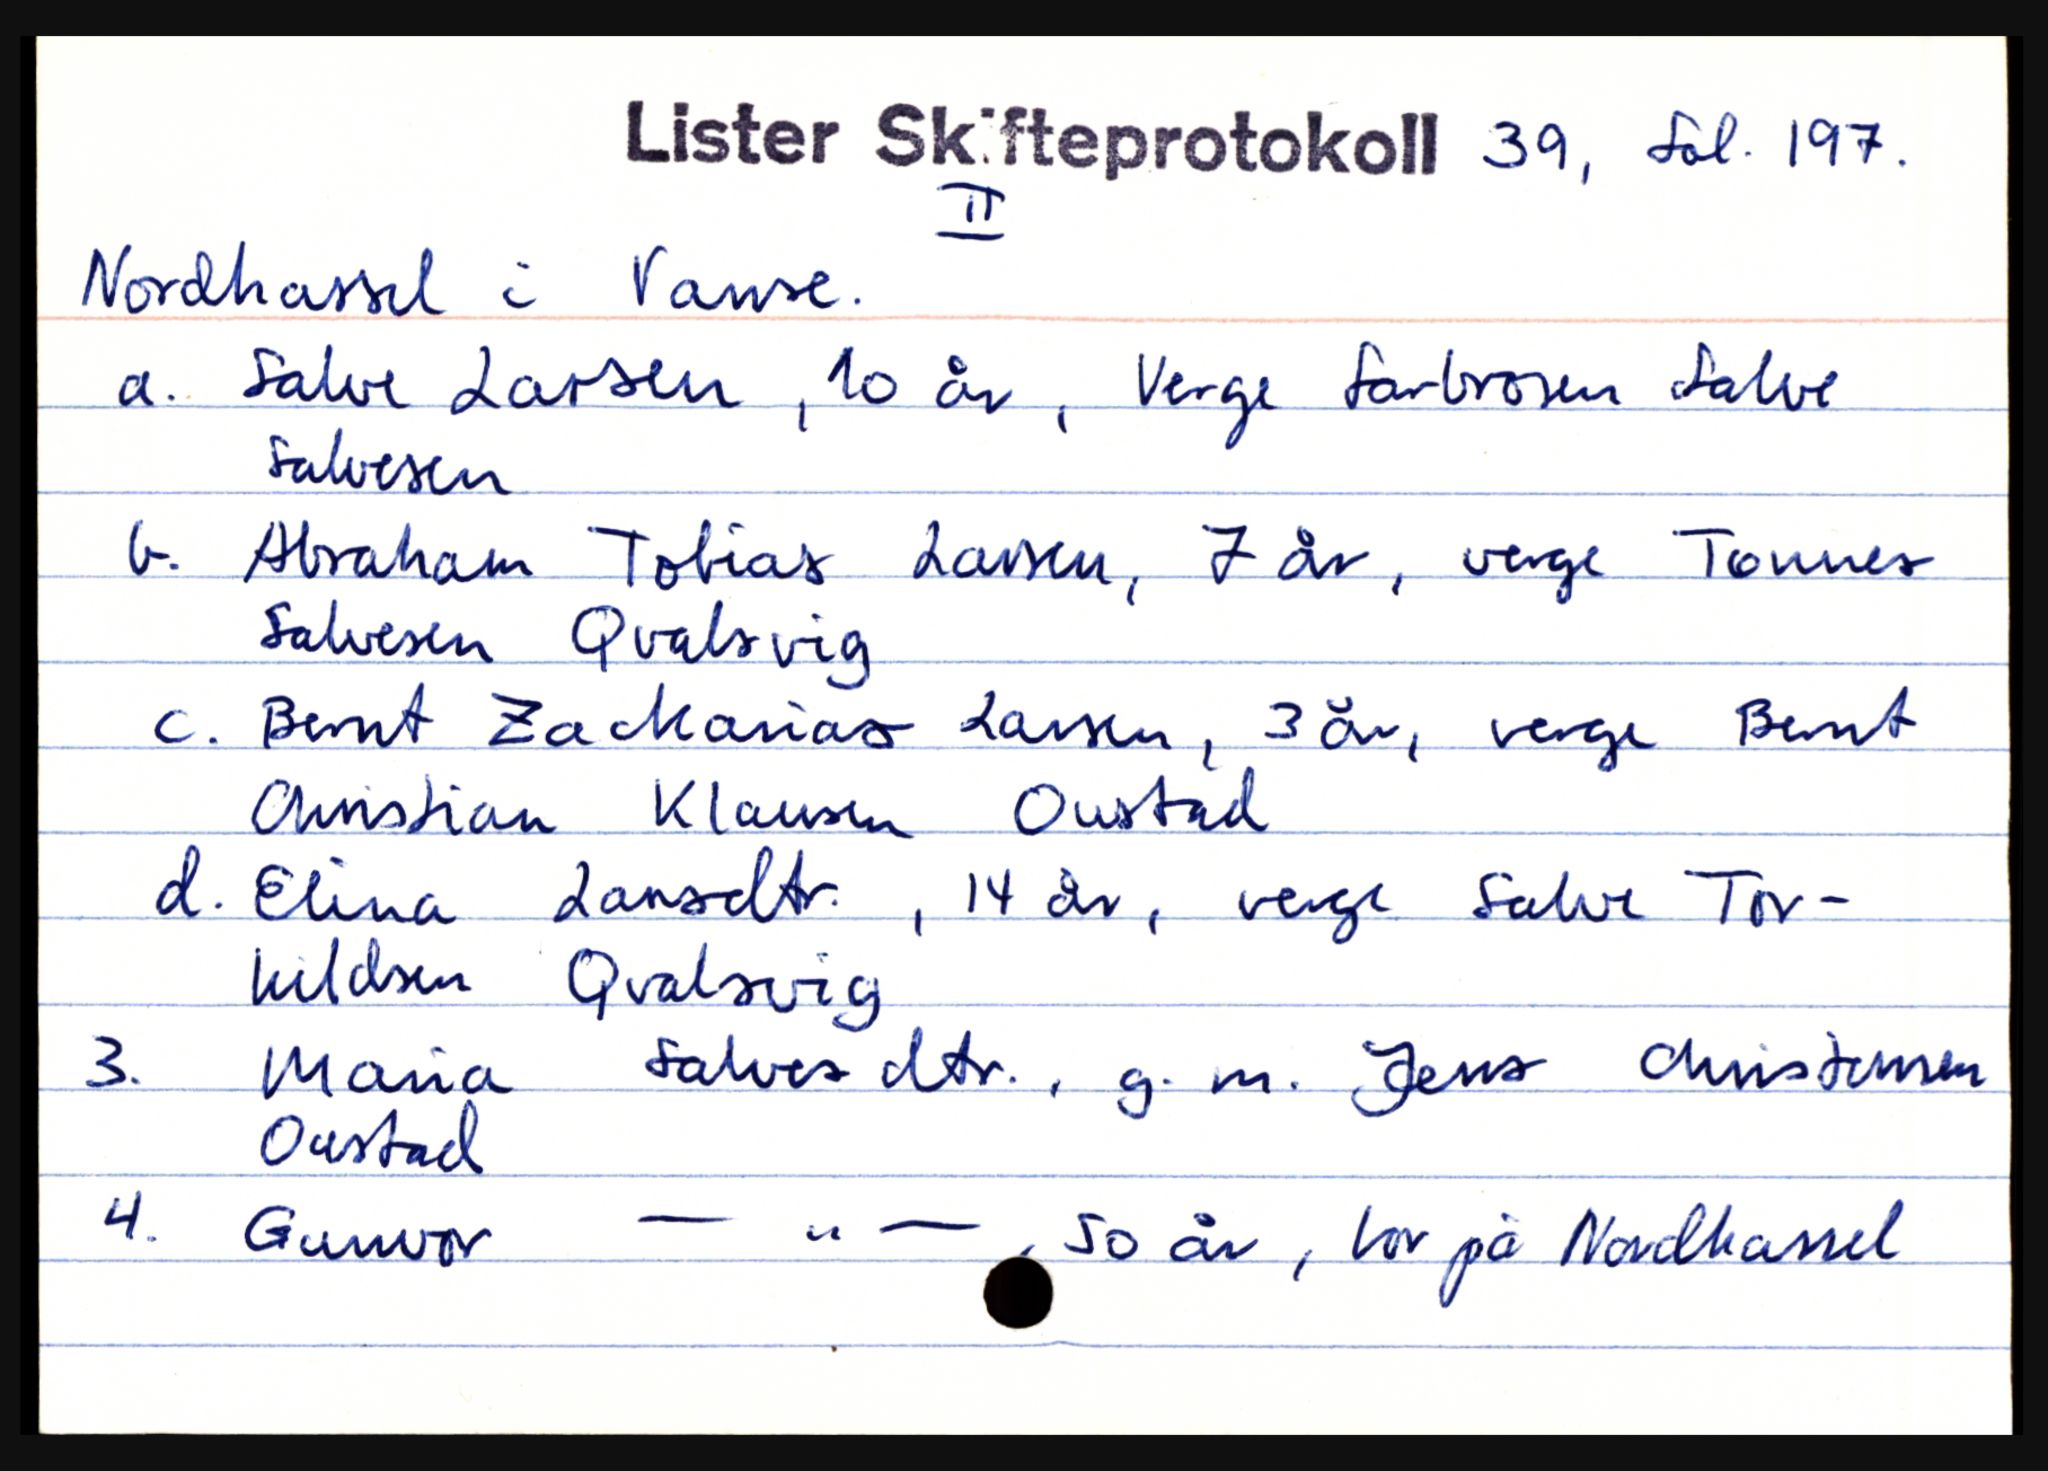 Lister Skifteprotokoll 39, fol. 197.
II
Nordhassel i Vanse.
a. Salve Larsen, 10 år, Verge farbroren Salve
Salvesen
b. Abraham Tobias Larsen, 7 år, verge Tønnes
Salvesen Qvalsvig
c. Bernt Zackarias Larsen, 3 år, verge Bernt
Christian Klausen Oustad
d. Elina Larsdtr., 14 år, verge Salve Tor-
kildsen Qvalsvig
3. Maria Salvesdtr., g. m. Jens Christensen
Oustad
4. Gunvor — " —, 50 år, bor på Nordhassel